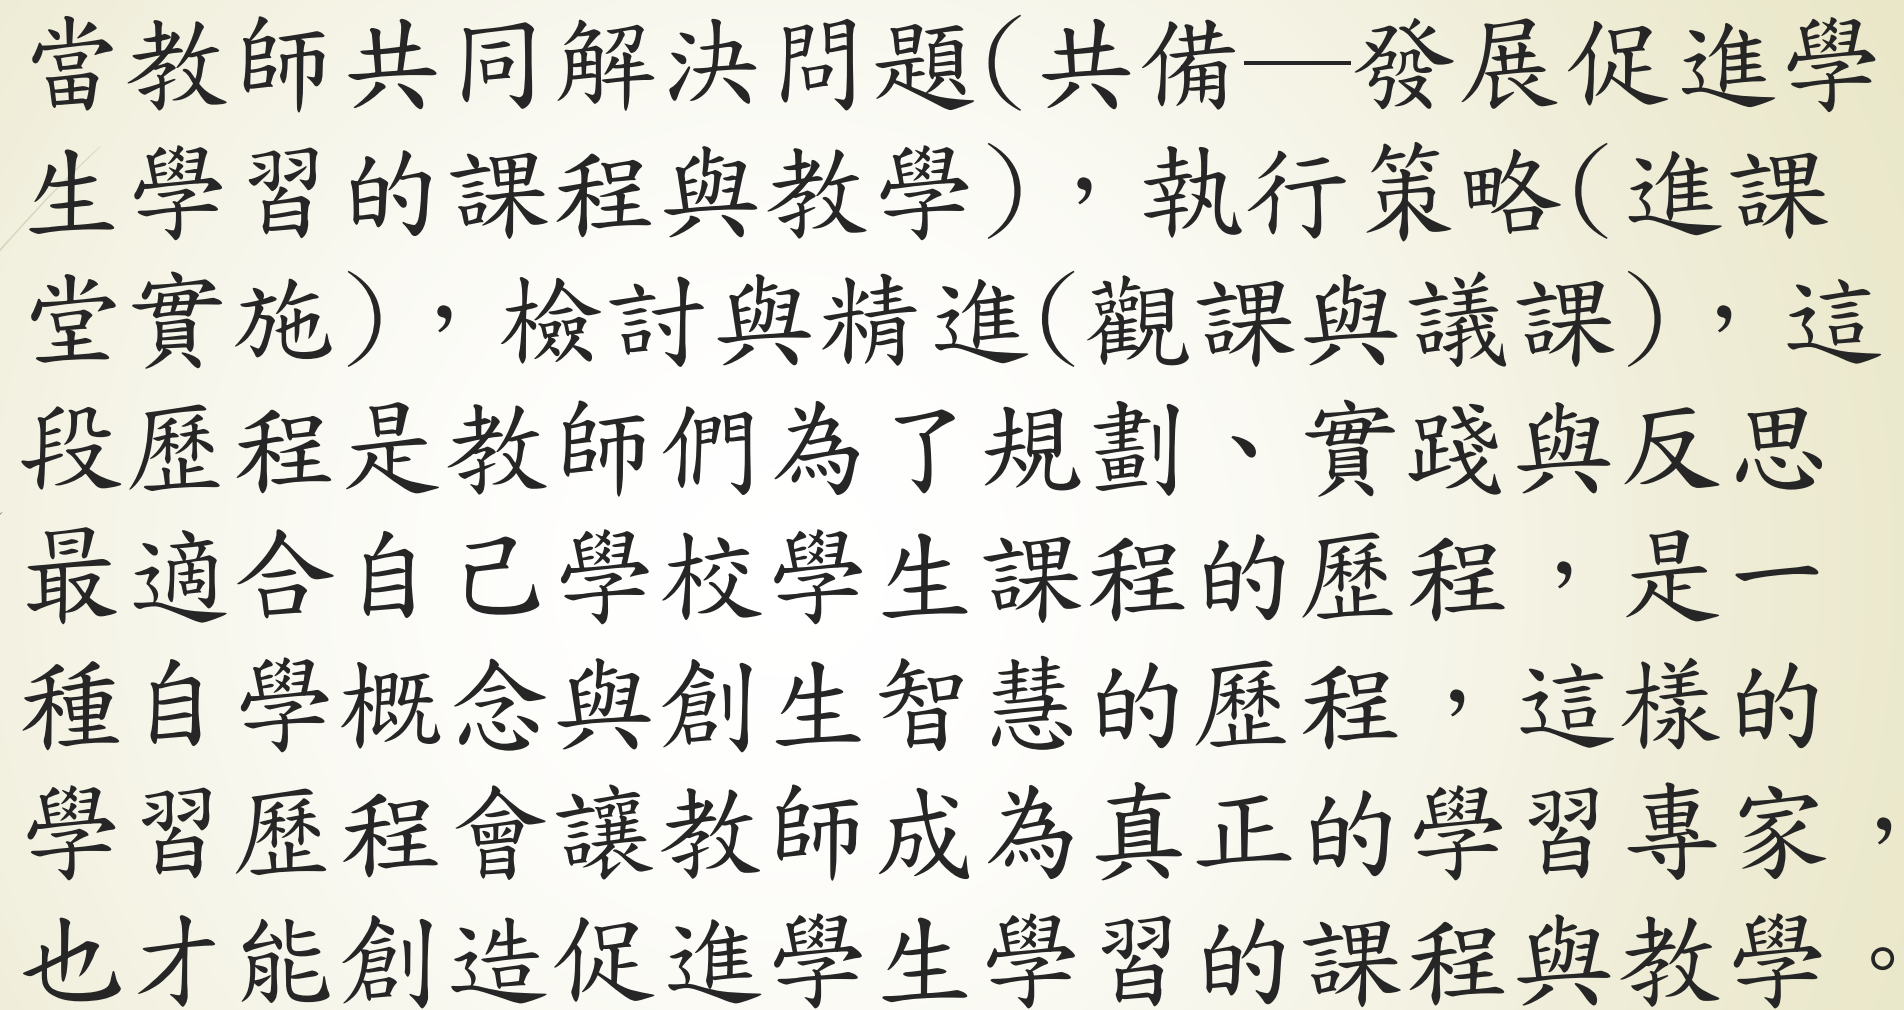 當教師共同解決問題(共備—發展促進學
生學習的課程與教學)，執行策略(進課
堂實施)，檢討與精進(觀課與議課)，這
段歷程是教師們為了規劃、實踐與反思
最適合自己學校學生課程的歷程，是一
種自學概念與創生智慧的歷程，這樣的
學習歷程會讓教師成為真正的學習專家，
也才能創造促進學生學習的課程與教學。